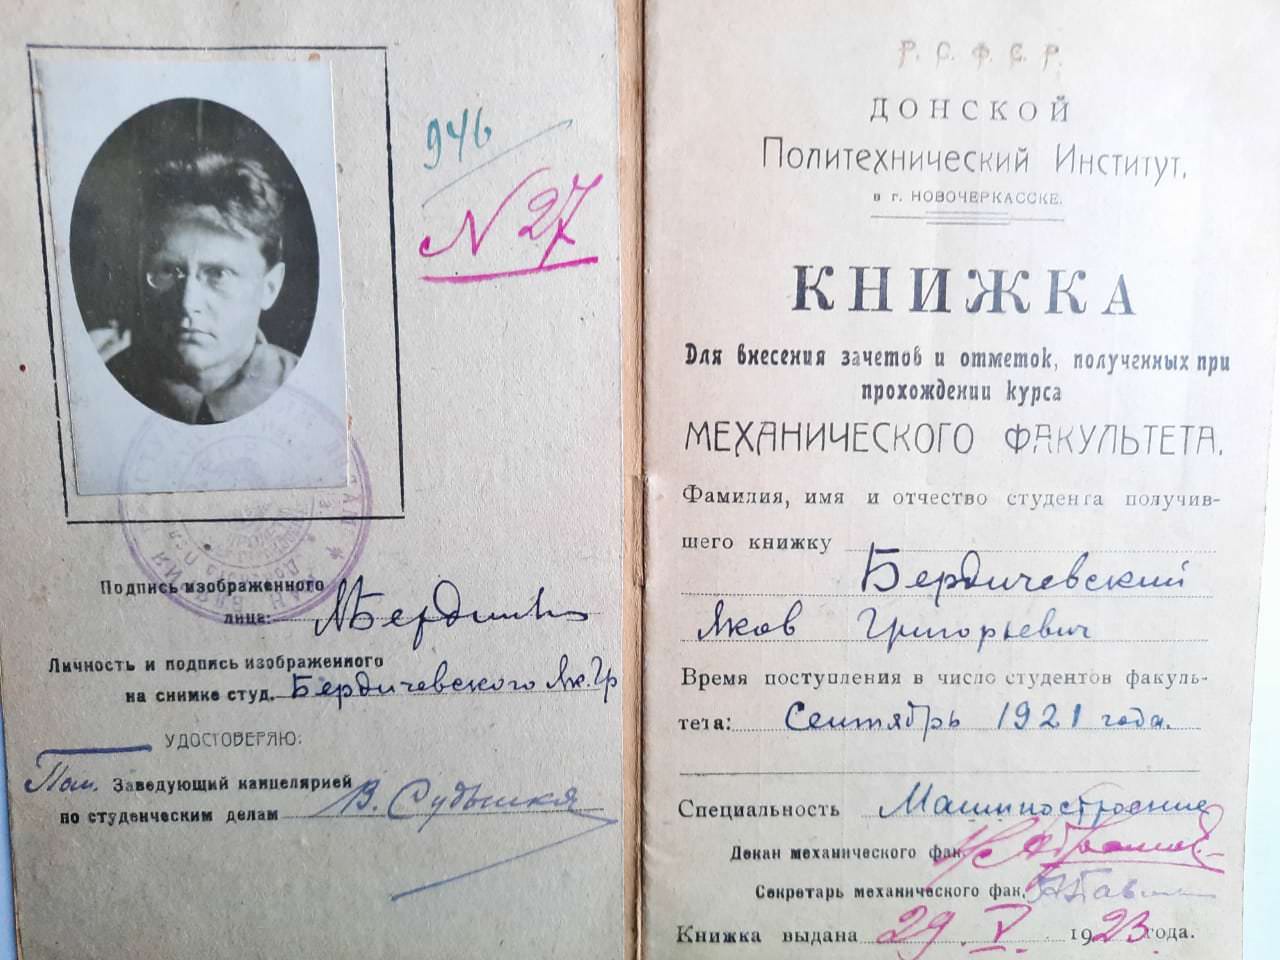 946
N 27
Подпись изображенного
лица: Бердичев
Личность и подпись изображенного
на снимке студ. Бердичевского Як. Гр
УДОСТОВЕРЯЮ:
Пом. Заведующий канцелярией
по студенческим делам В.
Р. С. Ф. С. Р.
ДОНСКОЙ
Политехнический Институт,
в г. НОВОЧЕРКАССКЕ.
КНИЖКА
Для внесения зачетов и отметок, полученных при
прохождении курса
МЕХАНИЧЕСКОГО ФАКУЛЬТЕТА.
Фамилия, имя и отчество студента получив-
шего книжку
Бердичевский
Яков Григорьевич
Время поступления в число студентов факуль-
тета: Сентябрь 1921 года.
Специальность Машиностроение
Декан механического фак.
Секретарь механического фак.
Книжка выдана 29. V 1923 года.